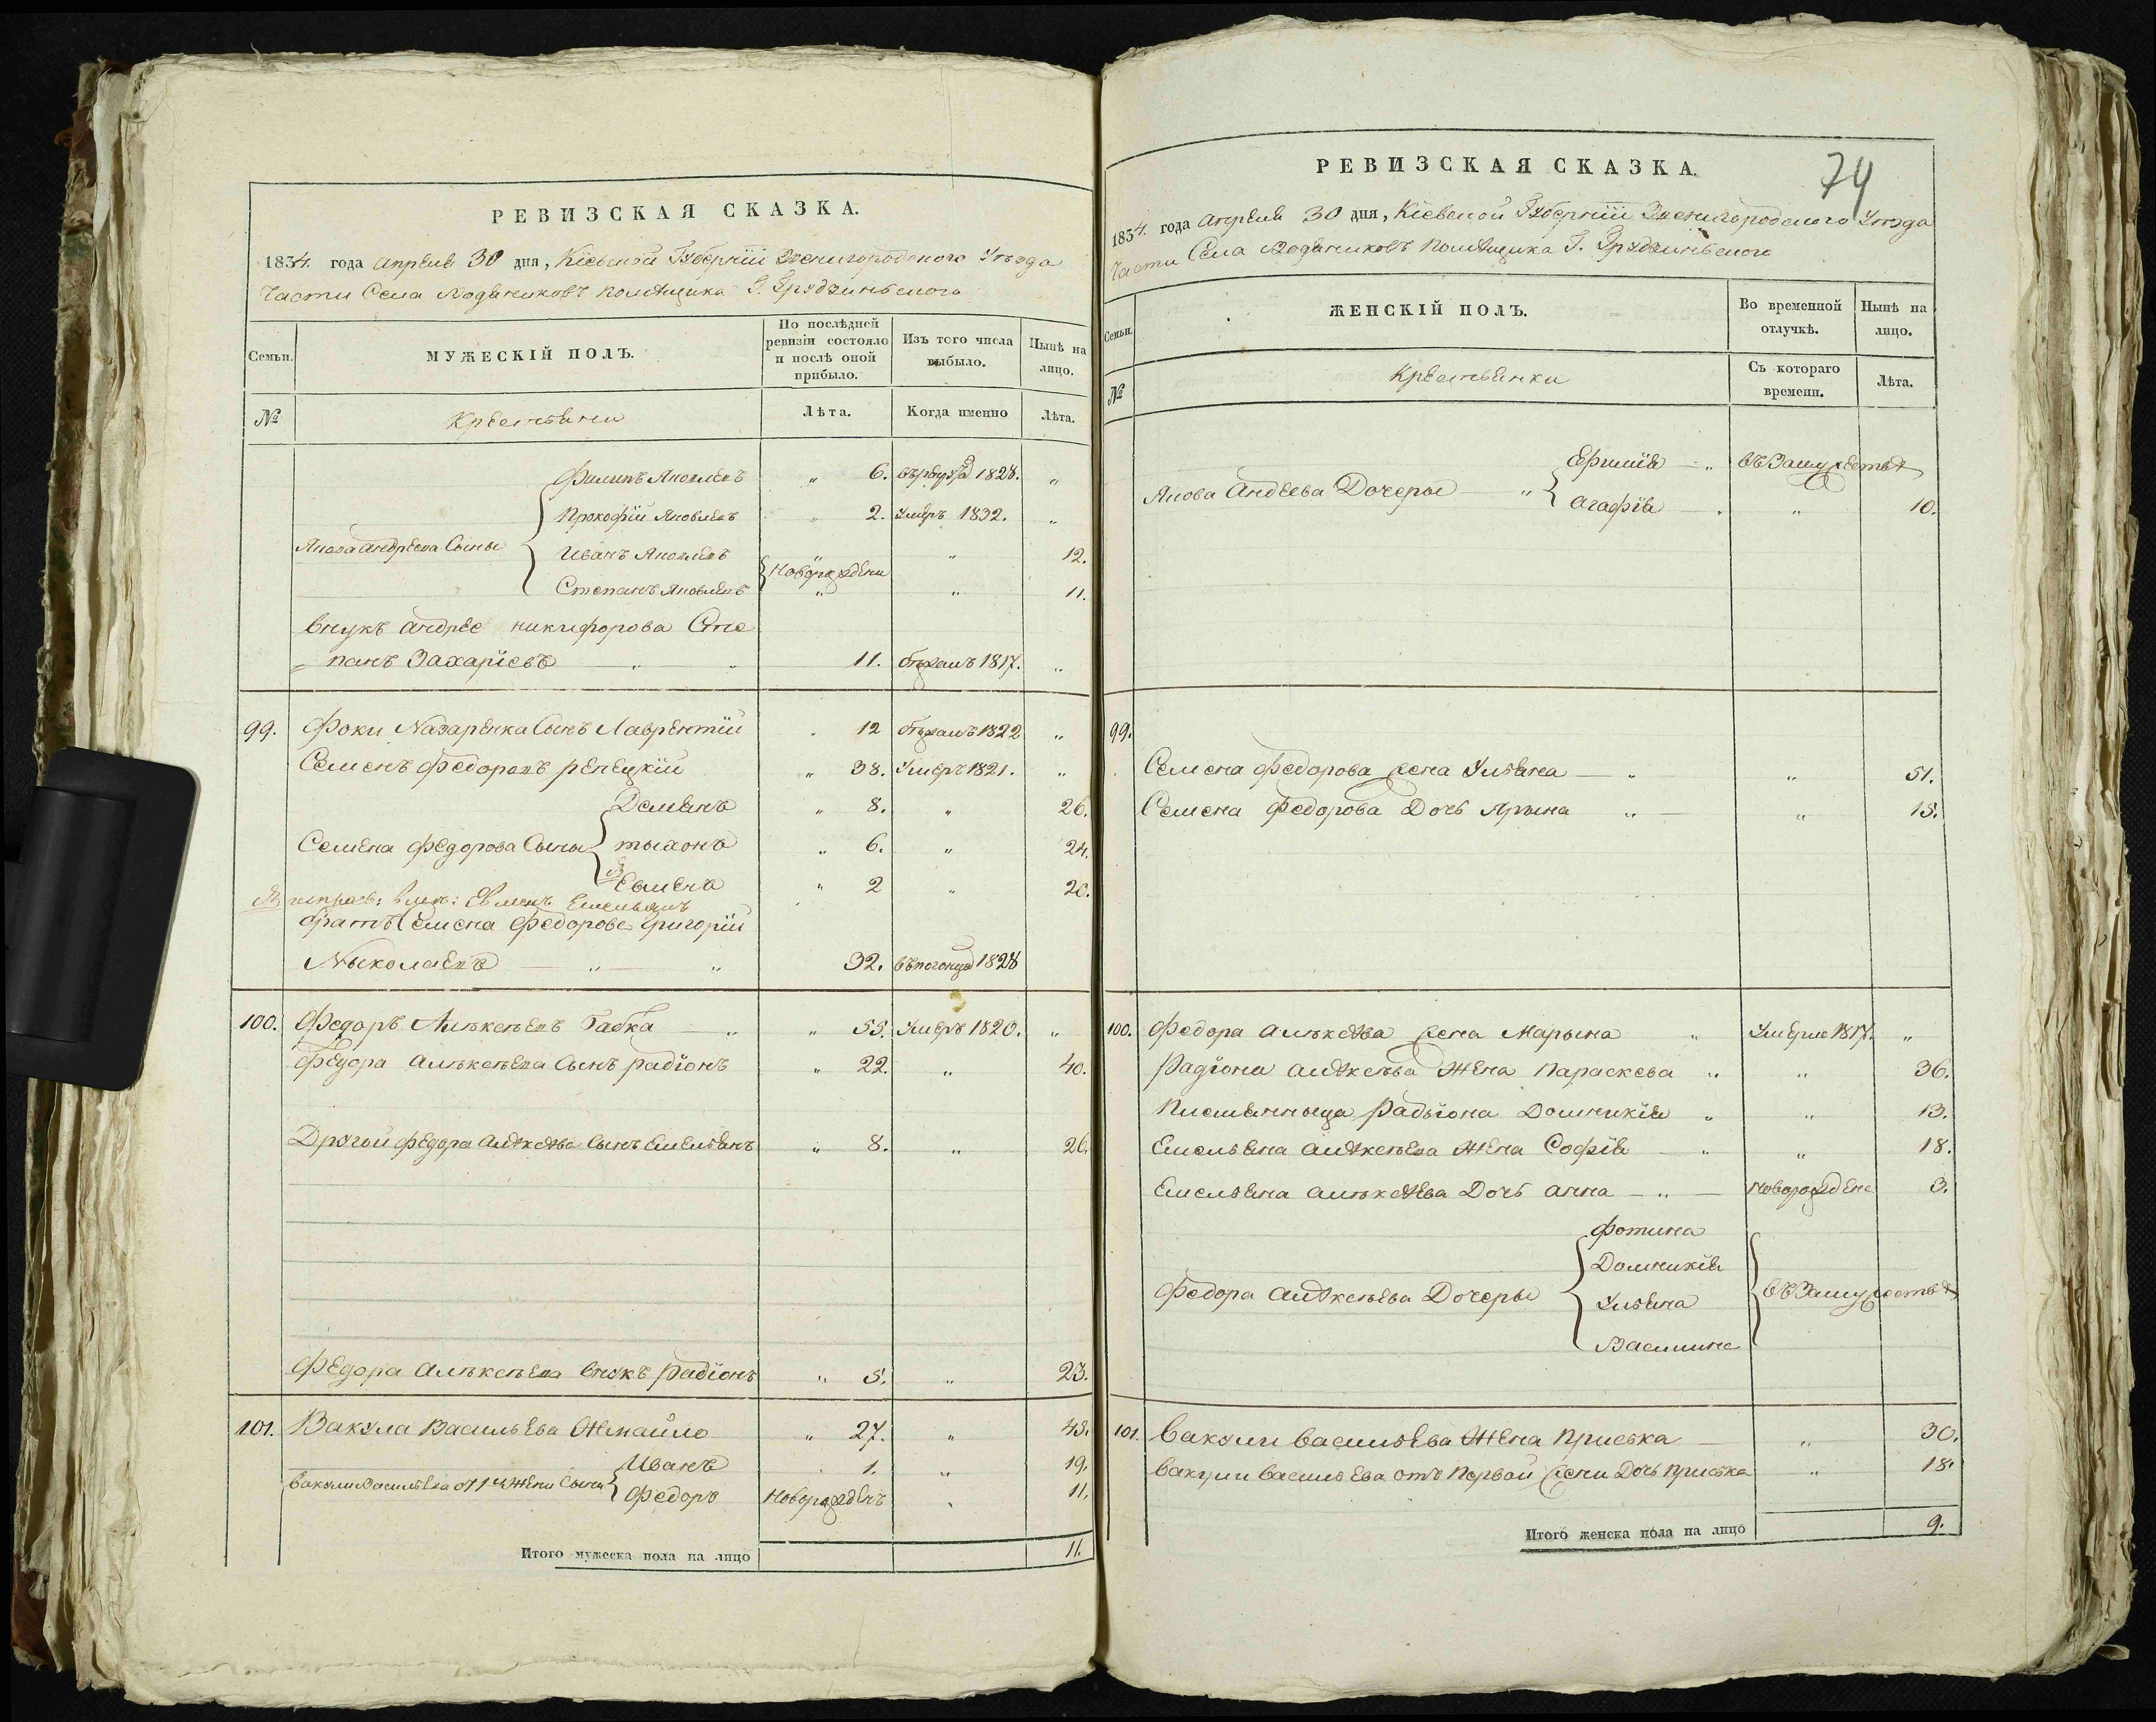 РЕВИЗСКАЯ СКАЗКА.
1834. года Апреля 30 дня, Кіевской Губерніи Звенигородского Уезда
Части Села Водяниковъ помѣщика Г. Грудзинского
Семьи.
МУЖЕСКІЙ ПОЛЪ.
По послѣдней ревизіи состояло и послѣ оной прибыло.
Изъ того числа выбыло.
Нынѣ на лицо.
№
Крестьяни
Лѣта.
Когда именно
Лѣта.
Филипъ Яковлевъ „ 6. 1828. „
Прокофій Яковлевъ „ 2. Умеръ 1832. „
Якова Андреева Сыны
Иванъ Яковлевъ „ „ 12.
Новорождени
Степанъ Яковлевъ „ „ 11.
Внукъ Андрея Никифорова Сте
панъ Захаріевъ „ „ 11. бежалъ 1817. „
99. Фоки Назаренка Сынъ Лаврентій 12 бежалъ 1822 „
Семенъ Федоровъ Репецкій „ 38. Умеръ 1821. „
Демянъ „ 8. „ 26.
Семена Федорова Сыны тыхонъ „ 6. „ 24.
Евмена „ 2 „ 20.
Евменъ Емельянъ
братъ Семена Федорова Григорій
Николаевъ „ „ 32. 1828
100. Федоръ Алѣксѣевъ Габка „ „ 55. Умеръ 1820. „
Федора Алѣксѣева Сынъ Радіонъ „ 22. „ 40.
Другой Федора Алѣксѣва Сынъ Емельянъ „ 8. „ 26.
Федора Алѣксѣева внукъ Радіонъ „ 5. „ 23.
101. Вакула Васильева Жмайло „ 27. „ 45.
Иванъ 1. „ 19.
Вакули Васильева от 1й Жени Сыны
Федоръ Новорожденъ „ 11.
Итого мужеска пола на лицо 11.
РЕВИЗСКАЯ СКАЗКА.
74
1834. года Апреля 30 дня, Кіевской Губерніи Звенигородского Уезда
Части Села Водяниковъ помѣщика Г. Грудзинского
Семьи.
ЖЕНСКІЙ ПОЛЪ.
Во временной отлучкѣ.
Нынѣ на лицо.
№
Крестьянки
Съ котораго времени.
Лѣта.
Якова Андеева Дочеры „
Ефимія „ въ Замужествѣ
Агафія „ 10.
99.
Семена Федорова жена Ульяна „ „ 51.
Семена Федорова Дочь Ярына „ „ 15.
100. Федора Алѣксѣва жена Марына „ Умерла 1817. „
Радіона Алѣксѣва Жена Параскева „ „ 36.
Писменныца Радыона Домникія „ „ 13.
Емельяна Алѣксѣева Жена Софія „ „ 18.
Емельяна Алѣксѣева Дочь Анна „ Новорождена 3.
Фотина
Домникія
Федора Алѣксѣева Дочеры въ Замужествѣ
Ульяна
Василина
101. Вакули Васильева Жена Приська „ 30.
Вакули Васильева отъ Первой Жени Дочь Приська „ 18.
Итого женска пола на лицо 9.